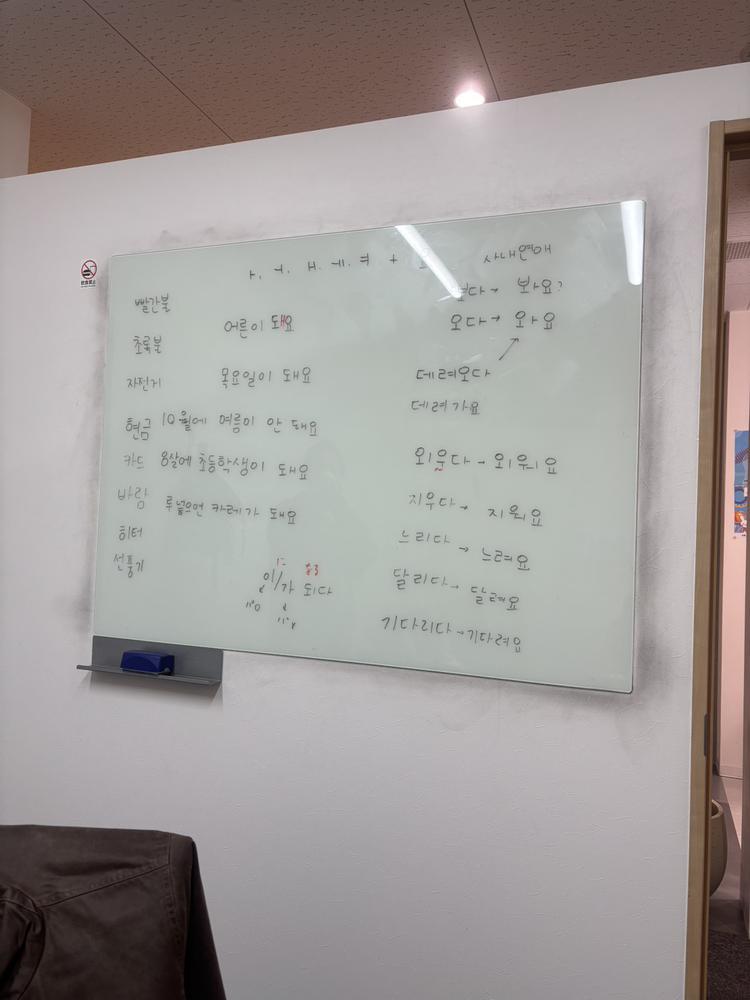 ㅏ. ㅓ. ㅐ. ㅔ. ㅕ +
사내연애
빨간불
초록불
자전거
현금
카드
바람
히터
선풍기
어른이 돼요
목요일이 돼요
10월에 여름이 안 돼요
8살에 초등학생이 돼요
루 넣으면 카레가 돼요
이/가 되다
보다 → 봐요?
오다 → 와요
데려오다
데려가요
외우다 → 외워요
지우다 → 지워요
느리다 → 느려요
달리다 → 달려요
기다리다 → 기다려요